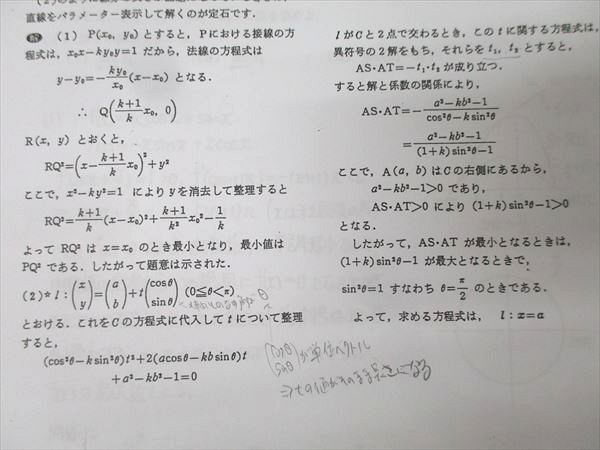 直線をパラメーター表示して解くのが定石です.
解 (1) P(x₀, y₀) とすると, P における接線の方
程式は, x₀x−ky₀y=1 だから, 法線の方程式は
y−y₀=−ky₀/x₀(x−x₀) となる.
∴ Q((k+1)/k x₀, 0)
R(x, y) とおくと,
RQ²=(x−(k+1)/k x₀)²+y²
ここで, x²−ky²=1 により y を消去して整理すると
RQ²=(k+1)/k (x−x₀)²+(k+1)/k² x₀²−1/k
よって RQ² は x=x₀ のとき最小となり, 最小値は
PQ² である. したがって題意は示された.
(2)* l : (x y)=(a b)+t(cosθ sinθ) (0≦θ<π)
とおける. これを C の方程式に代入して t について整理
すると,
(cos²θ−k sin²θ)t²+2(a cosθ−kb sinθ)t
+a²−kb²−1=0
l が C と 2 点で交わるとき, この t に関する方程式は,
異符号の 2 解をもち, それらを t₁, t₂ とすると,
AS・AT=−t₁・t₂ が成り立つ.
すると解と係数の関係により,
AS・AT=−(a²−kb²−1)/(cos²θ−k sin²θ)
=(a²−kb²−1)/((1+k)sin²θ−1)
ここで, A(a, b) は C の右側にあるから,
a²−kb²−1>0 であり,
AS・AT>0 により (1+k)sin²θ−1>0
となる.
したがって, AS・AT が最小となるときは,
(1+k)sin²θ−1 が最大となるときで,
sin²θ=1 すなわち θ=π/2 のときである.
よって, 求める方程式は, l : x=a
(cosθ sinθ)が単位ベクトル
⇒tの値がそのまま長さになる